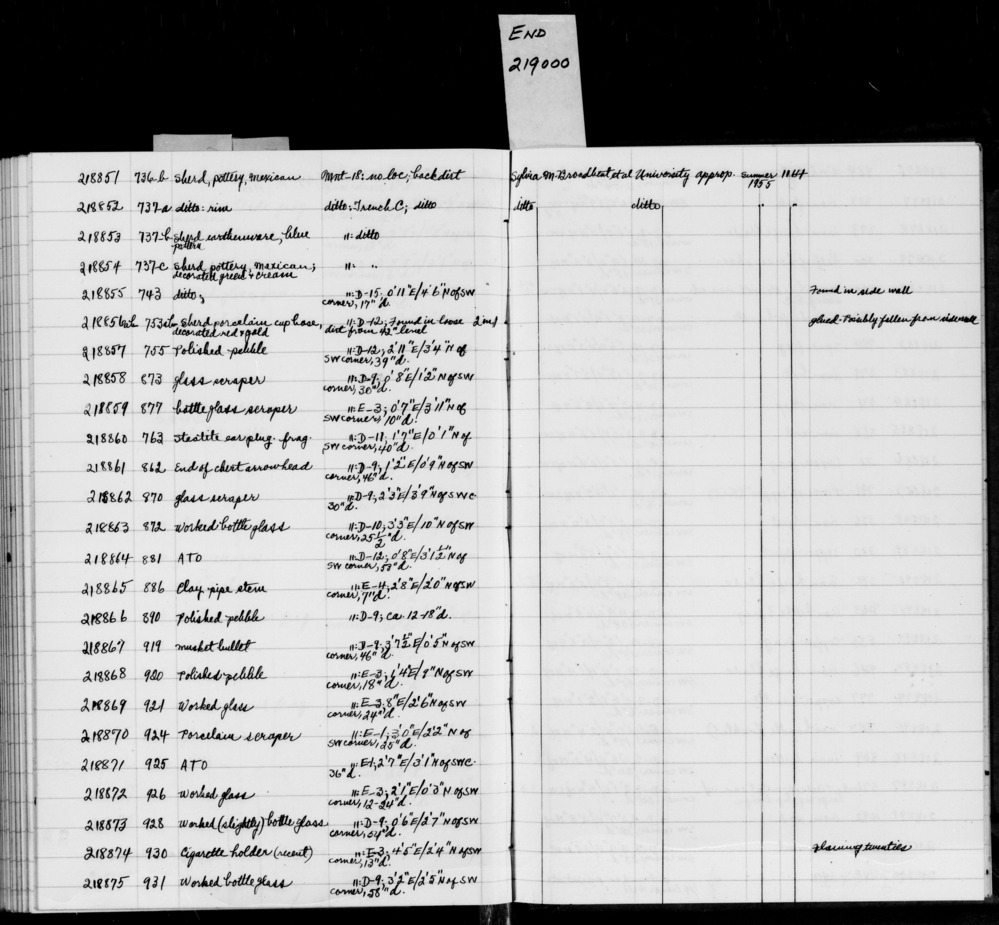 END
219000
218851 736-b Sherd, pottery, Mexican Mnt-18; no loc; backdirt Sylvia M. Broadbent et al University approp. summer 1955 1164
218852 737-a ditto: rim ditto; Trench C; ditto ditto ditto " "
218853 737-b Sherd earthenware, blue pattern ": ditto
218854 737-c Sherd, pottery, Mexican; decorated green & cream ": "
218855 743 ditto; ":D-15; 0'11"E/4'6"N of SW corner, 17"d. Found in side wall
218856a&b 753a&b Sherd porcelain cup base, decorated red & gold ":D-12; Found in loose dirt from 42" level 2 in 1 glued - Possibly fallen from sidewall
218857 755 Polished pebble ":D-12; 2'11"E/3'4"N of SW corner, 39"d.
218858 873 glass scraper ":D-9; 0'8"E/1'2"N of SW corner, 30"d.
218859 877 bottle glass scraper ":E-3; 0'7"E/3'11"N of SW corner, 10"d.
218860 763 Steatite ear plug. frag. ":D-11; 1'7"E/0'1"N of SW corner, 40"d.
218861 862 End of chert arrowhead ":D-9; 1'2"E/0'9"N of SW corner, 46"d.
218862 870 glass scraper ":D-9; 2'3"E/3'9"N of SWC. 30"d.
218863 872 Worked bottle glass ":D-10; 3'3"E/10"N of SW corner, 25 1/2"d.
218864 881 ATO ":D-12; 0'8"E/3'1 1/2"N of SW corner, 53"d.
218865 886 Clay pipe stem ":E-4; 2'8"E/2'0"N of SW corner, 7"d.
218866 890 Polished pebble ":D-9; ca. 12-18"d.
218867 919 musket bullet ":D-9; 3'7 1/2"E/0'5"N of SW corner, 46"d.
218868 920 Polished pebble ":E-3; 1'4"E/9"N of SW corner, 18"d.
218869 921 Worked glass ":E-3; 8"E/2'6"N of SW corner, 24"d.
218870 924 Porcelain scraper ":E-1; 3'0"E/2'2"N of SW corner, 25"d.
218871 925 ATO ":E1; 2'7"E/3'1"N of SWC. 36"d.
218872 926 Worked glass ":E-3; 2'1"E/0'3"N of SW corner, 12-24"d.
218873 928 Worked (slightly) bottle glass ":D-9; 0'6"E/2'7"N of SW corner, 54"d.
218874 930 Cigarette holder (recent) ":E-3; 4'5"E/2'4"N of SW corner, 13"d. flaming twenties
218875 931 Worked bottle glass ":D-9; 3'2"E/2'5"N of SW corner, 58"d.